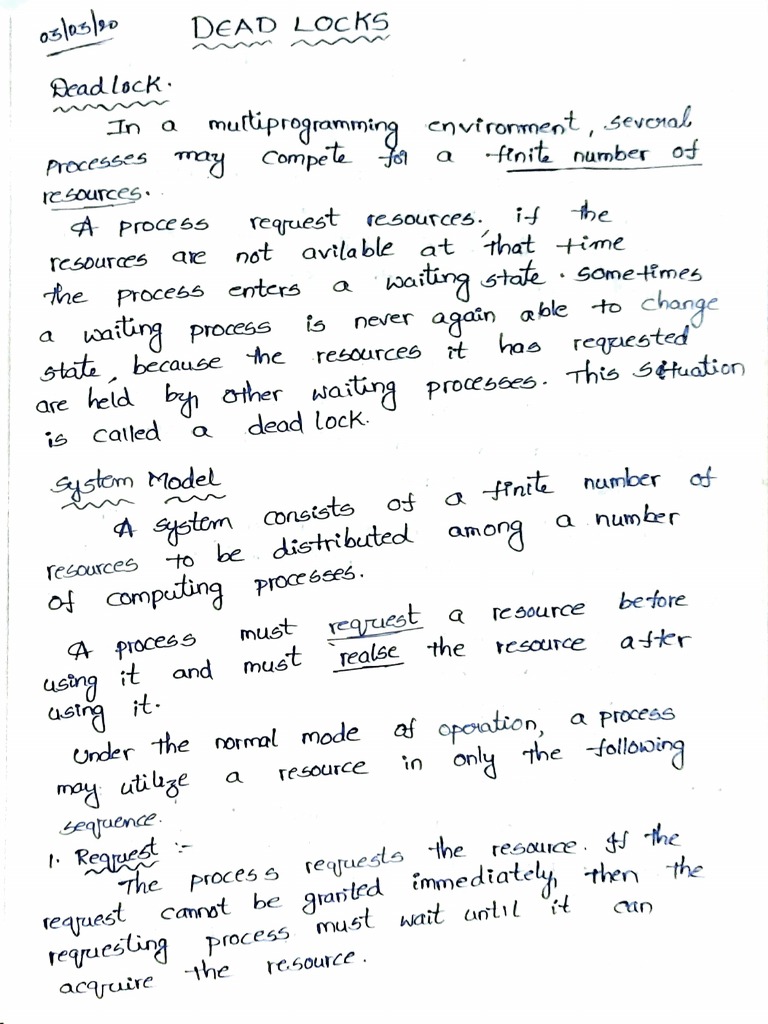 03/03/20 DEAD LOCKS
Dead lock.
In a multiprogramming environment, several
processes may compete for a finite number of
resources.
A process request resources. if the
resources are not avilable at that time
the process enters a waiting state. sometimes
a waiting process is never again able to change
state, because the resources it has requested
are held by other waiting processes. This situation
is called a dead lock.
System Model
A system consists of a finite number of
resources to be distributed among a number
of computing processes.
A process must request a resource before
using it and must realse the resource after
using it.
Under the normal mode of operation, a process
may utilize a resource in only the following
sequence.
1. Request :-
The process requests the resource. If the
request cannot be granted immediately, then the
requesting process must wait until it can
acquire the resource.